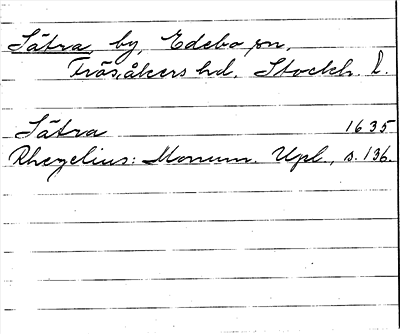 Sätra, by, Edebo sn,
Frösåkers hd, Stockh. l.
Sätra 1635
Rhezelius: Monum. Upl., s. 136.